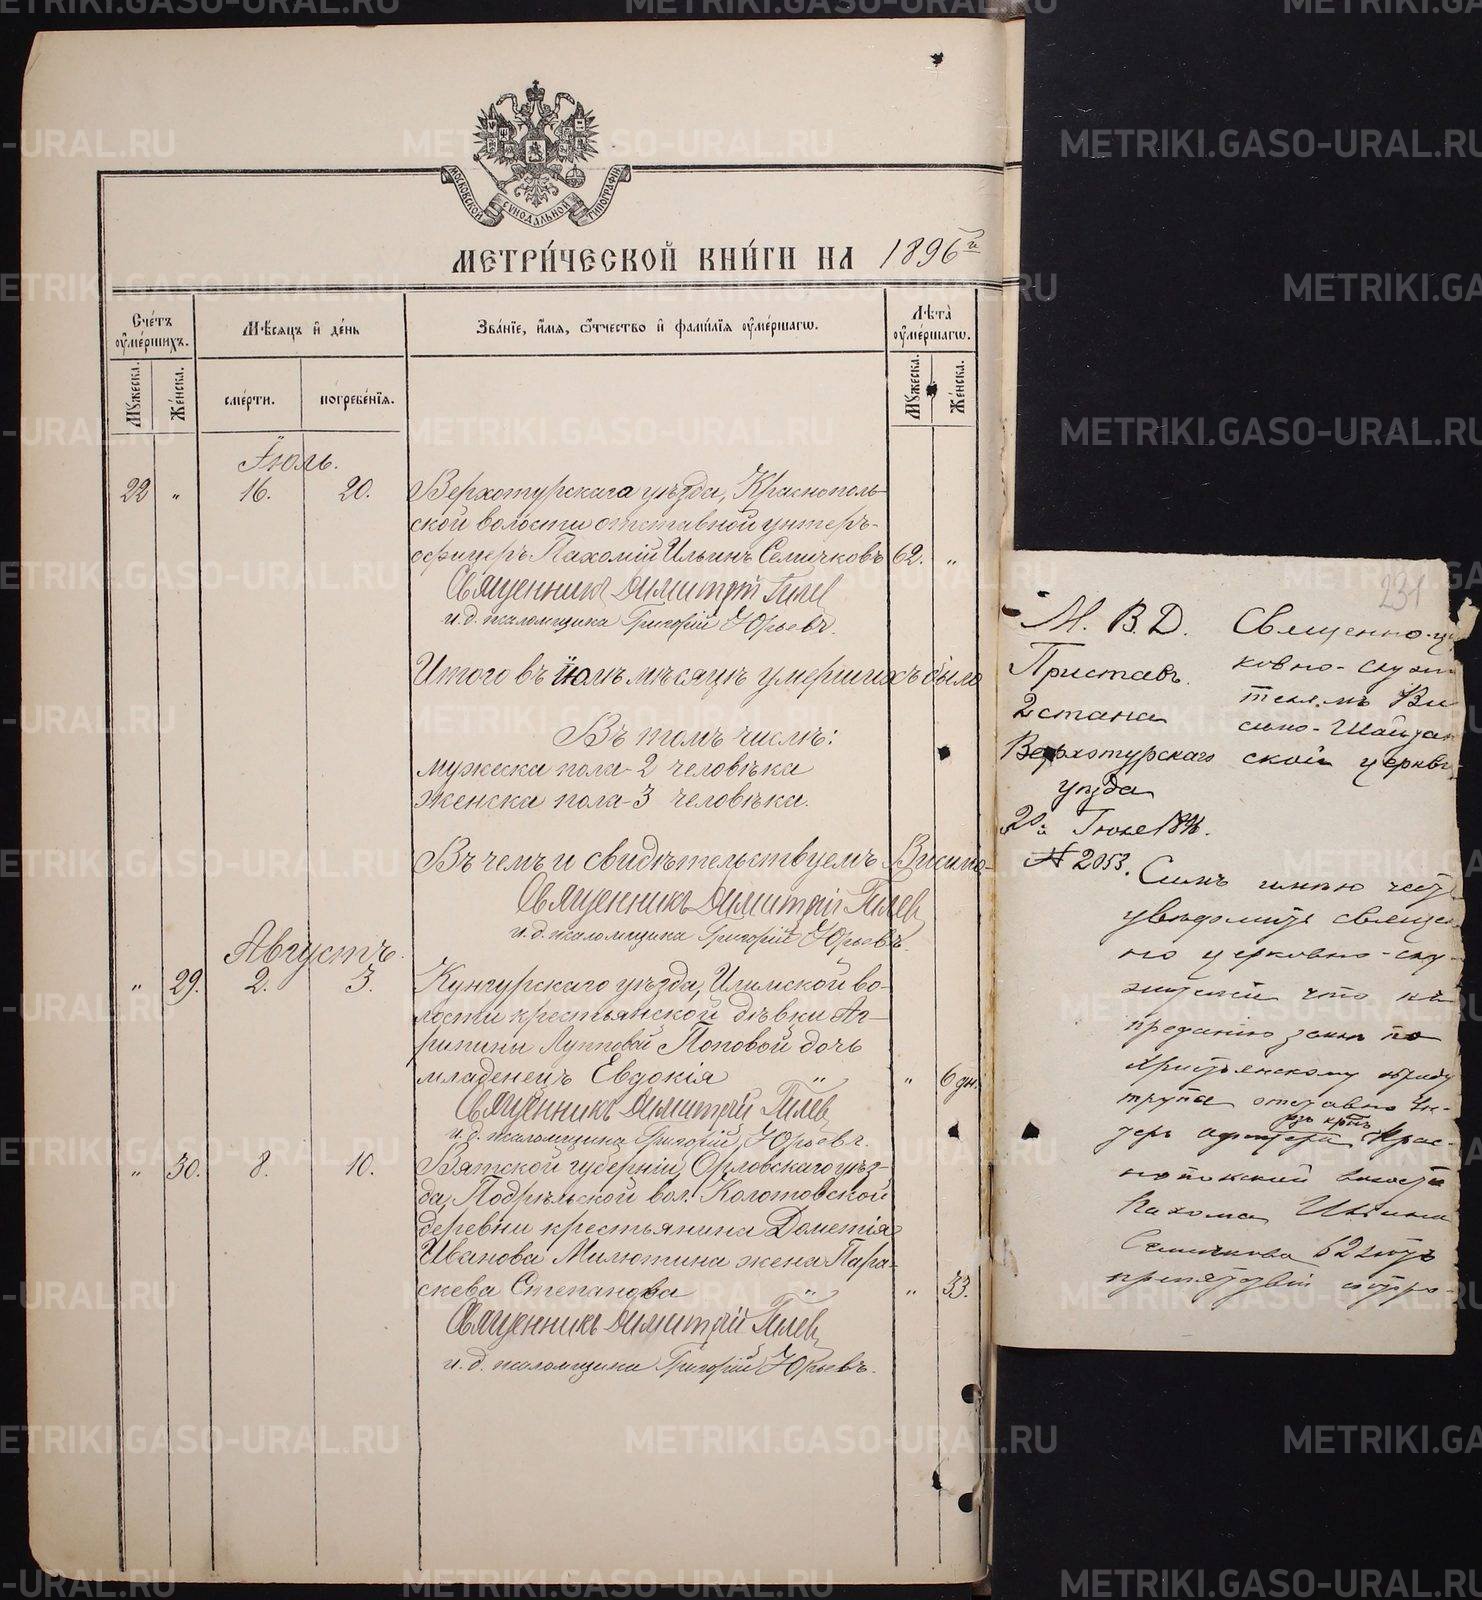 МОСКОВСКОЙ СѴНОДАЛЬНОЙ ТИПОГРАФІИ
МЕТРИ́ЧЕСКОЙ КНИ́ГИ НА 1896 й
Сче́тъ ᲂумершихъ.
Мѣсяцъ и де́нь
Зва́нїе, и́мѧ, ѻтчество и фами́лїѧ ᲂуме́ршагѡ.
Лѣта̀ ᲂуме́ршагѡ.
Мꙋжеска.
Же́нска.
сме́рти.
погребе́нїѧ.
Мꙋжеска.
Же́нска.
Іюль.
22 „ 16. 20. Верхотурскаго уѣзда, Краснополь-
ской волости отставной унтеръ-
офицеръ Пахомій Ильинъ Семичковъ 62. „
Священникъ Димитрій Гилев
и. д. псаломщика Григорій Юрьевъ.
Итого въ іюлѣ мѣсяцѣ умершихъ было
Въ томъ числѣ:
мужеска пола-2 человѣка
женска пола-3 человѣка.
Въ чемъ и свидѣтельствуемъ Висимо-
Священникъ Димитрій Гилев
и. д. псаломщика Григорій Юрьевъ.
Августъ.
„ 29. 2. 3. Кунгурскаго уѣзда, Илимской во-
лости крестьянской дѣвки Аг-
рипины Лупповой Поповой дочь
младенецъ Евдокія „ „ 6 дн.
Священникъ Димитрій Гилев
и. д. псаломщика Григорій Юрьевъ.
„ 30. 8. 10. Вятской губерніи, Орловскаго уѣз-
да, Подрѣльской вол. Колотовской
деревни крестьянина Дометія
Иванова Милютина жена Пара-
скева Степанова „ „ 33.
Священникъ Димитрій Гилев
и. д. псаломщика Григорій Юрьевъ.
231
М. В. Д.
Приставъ
2 стана
Верхотурскаго
уѣзда
20 Іюля 1896.
№ 2053.
Священно-це
ковно-служи
телямъ Ви
симо-Шайтан
ской церкви
Симъ имѣю честь
увѣдомить священ
но церковно-слу
жителей что къ
преданію землѣ по
Христьянскому обряду
трупа отставно Ун-
теръ офицера Крас-
нопольской волости
Пахома Ильина
Семичкова 62 лѣтъ
препятствій
METRIKI.GASO-URAL.RU